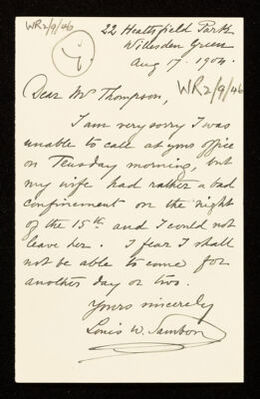 WR2/9/46
22 Heathfield Park
Willesden Green
Aug 17. 1904.
Dear Mr Thompson,
WR2/9/46
I am very sorry I was
unable to call at your office
on Teusday morning, but
my wife had rather a bad
confinement on the night
of the 15th and I could not
leave her. I fear I shall
not be able to come for
another day or two.
Yours sincerely
Louis W. Sambon